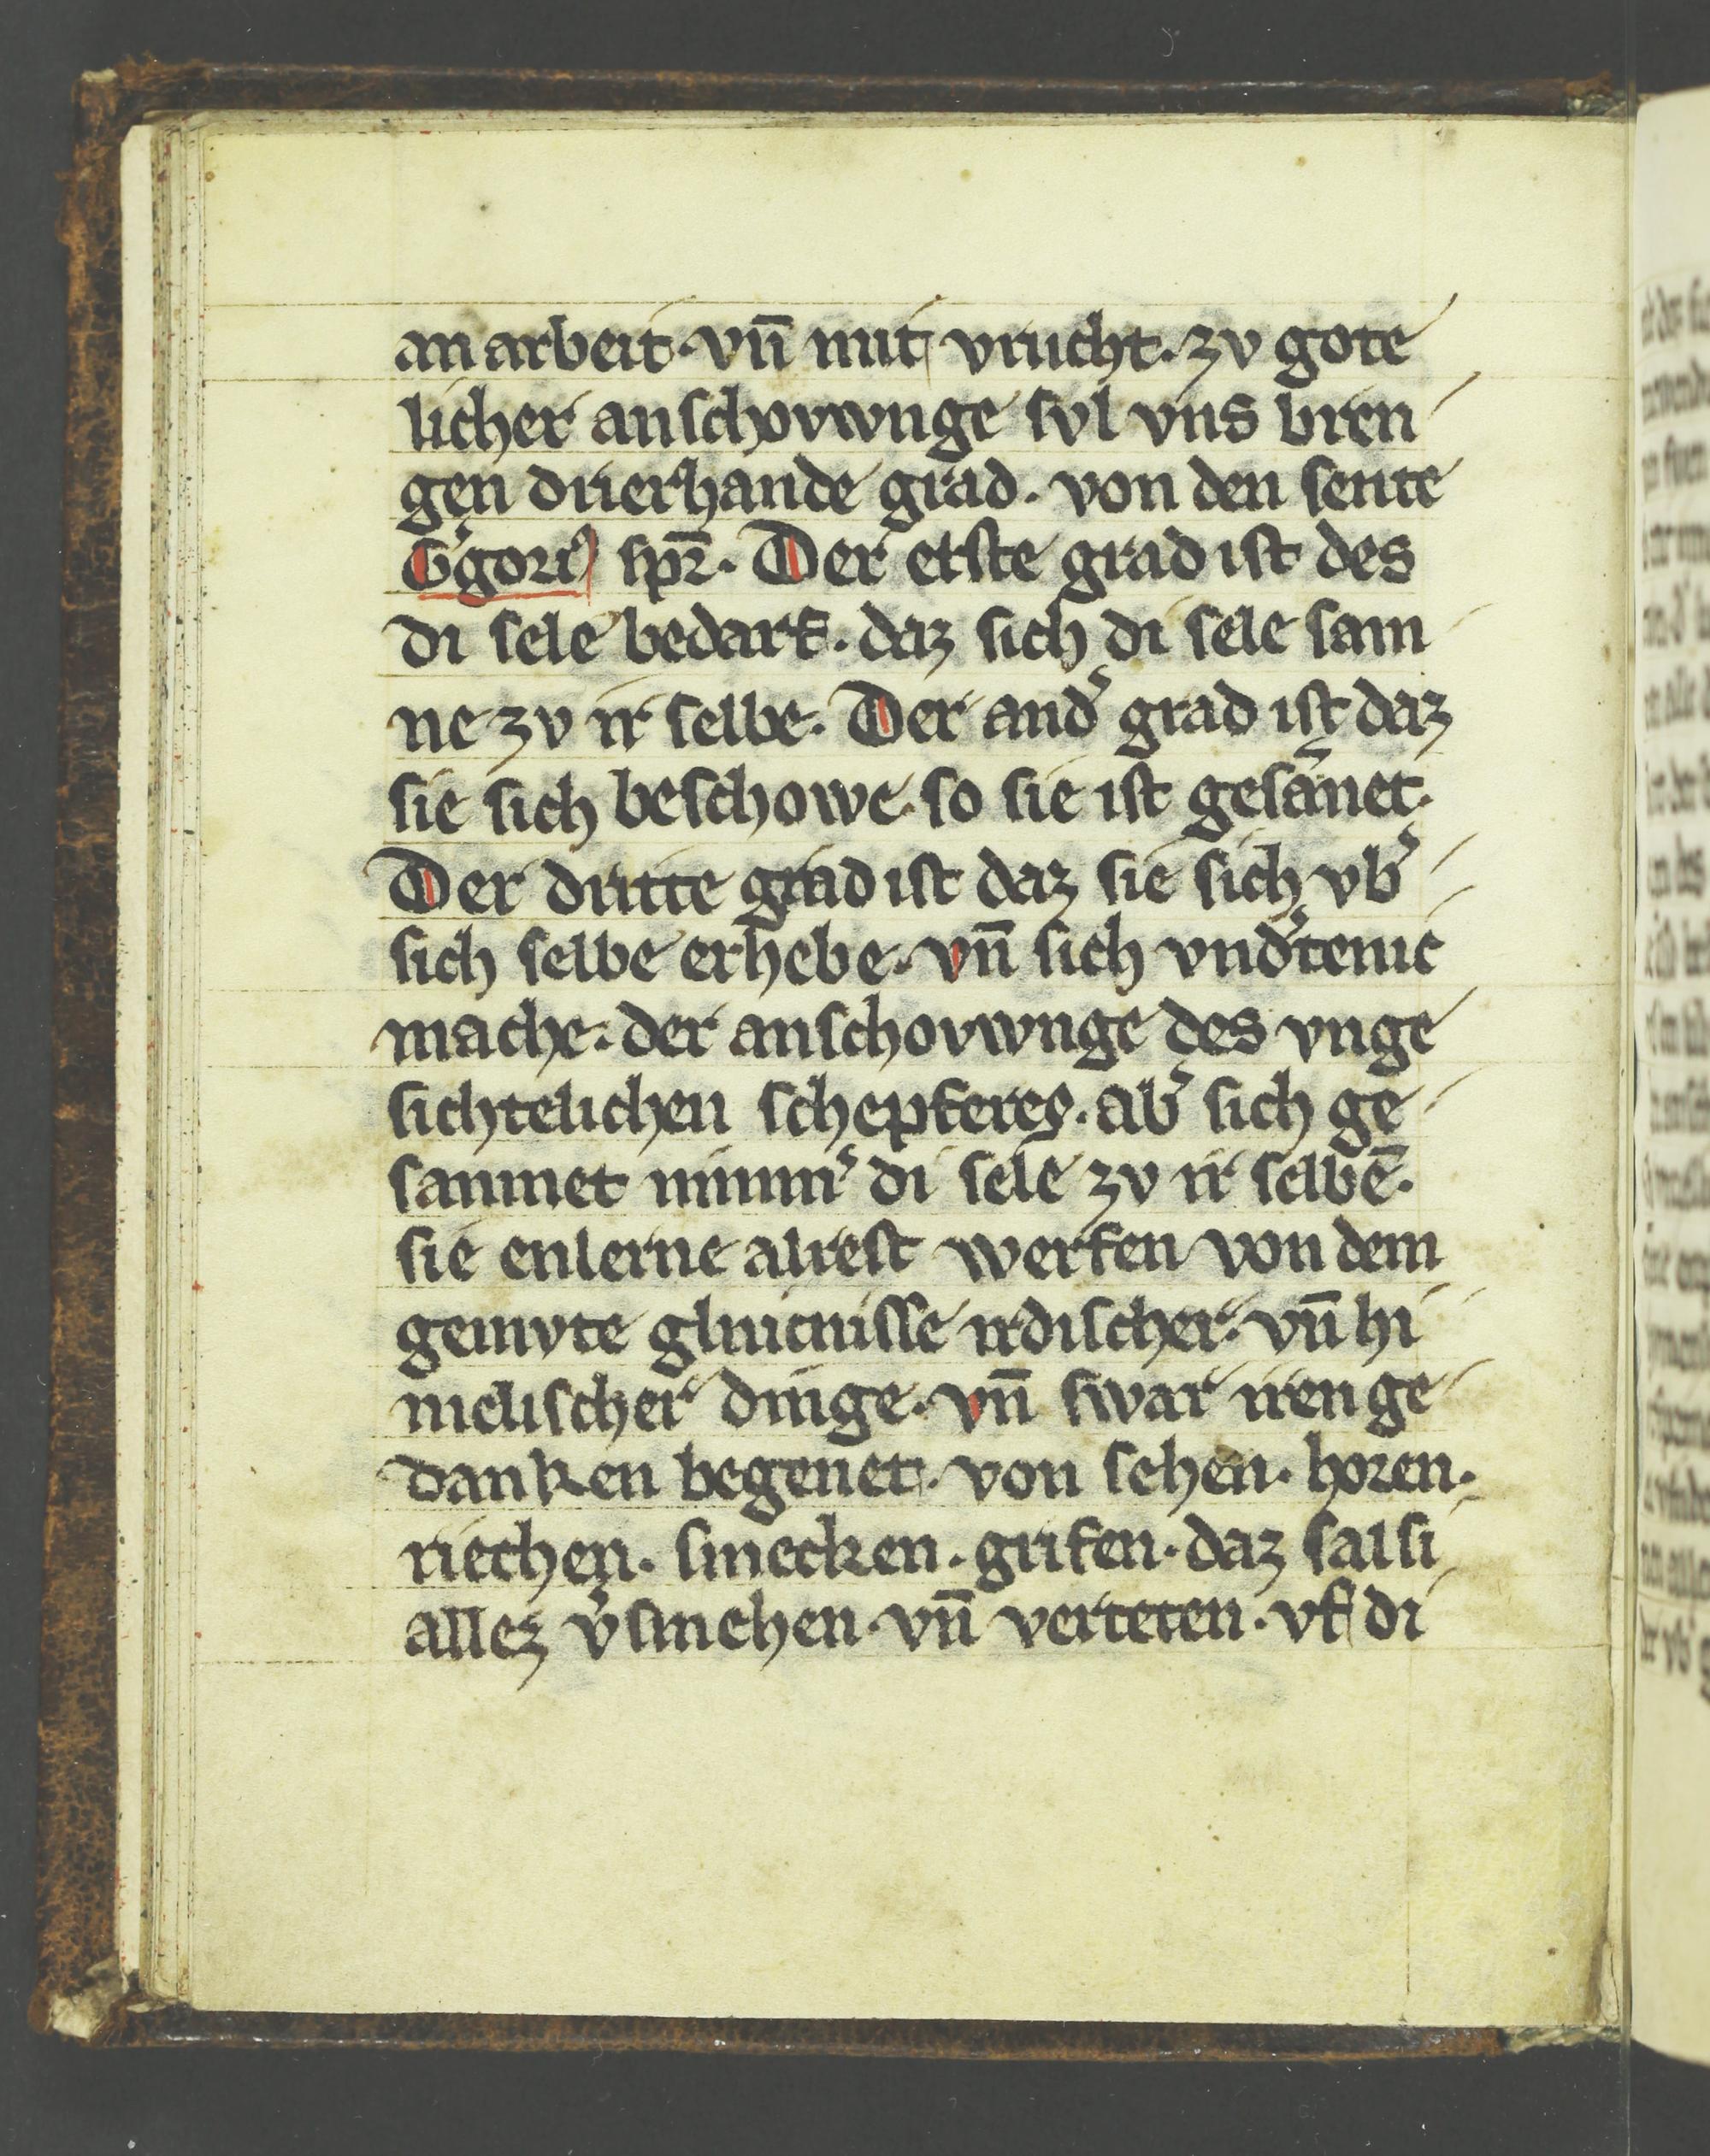 an arbeit · vn̄ mit vrucht · zv gote
licher anschovwnge svl vns bren
gen drierhande grad · von den sente
G͛goriꝰ spꝛ̄ · Der erste grad ist des
di sele bedarf · daz sich di sele sam
ne zv ir selbe · Der and͛ grad ist daz
sie sich beschowe · so sie ist gesānet ·
Der dritte grad ist daz sie sich vb͛
sich selbe erhebe · vn̄ sich vnd͛tenic
mache · der anschovwnge des vnge
sichtelichen schepferes · ab͛ sich ge
sammet nimm͛ di sele zv ir selbē ·
sie enlerne alrest werfen von dem
gemvte glinicnisse irdischer · vn̄ hi
melischer dinge · vn̄ swar iren ge
danken begenet · von sehen · horen ·
riechen · smecken · grifen · daz sal si
allez v͛smehen · vn̄ verteten · vf di